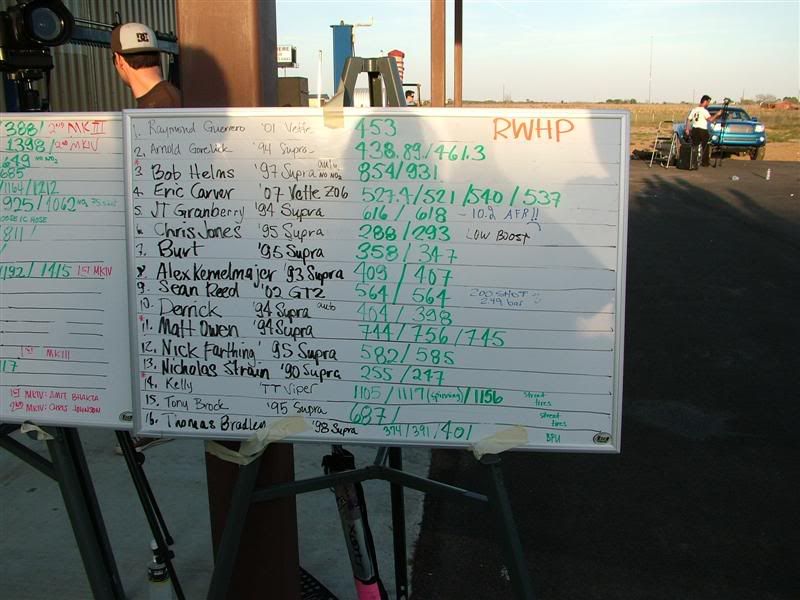 388/ 2ND MKIII
1398/ 2ND MKIV
649 NO NO2
685
1164/1212
925/1062 NO2 75 shot
IC HOSE
811/
1192/1415 1ST MKIV
1ST MKIII
17
1ST MKIV: AMIT BHAKTA
2ND MKIV: CHRIS JOHNSON
RWHP
1. Raymond Guerrero '01 Vette 453
2. Arnold Gorelick '94 Supra 438.89/461.3
3. Bob Helms '97 Supra auto NO NO2 854/931
4. Eric Carver '07 Vette Z06 527.4/521/540/537
5. JT Granberry '94 Supra 616/618 - 10.2 AFR!!
6. Chris Jones '95 Supra 288/293 LOW BOOST
7. Burt '95 Supra 358/347
8. Alex Kemelmajer '93 Supra 409/407
9. Sean Reed '02 GT2 564/564 200 SHOT
2.49 bar
10. Derrick '94 Supra auto 404/398
11. Matt Owen '94 Supra 744/756/745
12. Nick Farthing '95 Supra 582/585
13. Nicholas Strain '90 Supra 255/247
14. Kelly TT Viper 1105/1117 (spinning)/1156 street tires
15. Tony Brock '95 Supra 687/ street tires
16. Thomas Bradley '98 Supra 374/391/401 BPU